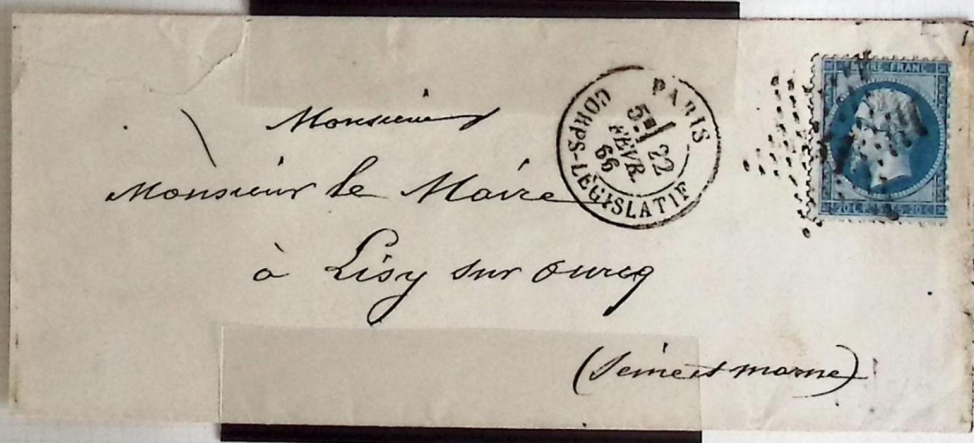 Monsieur
Monsieur le Maire
à Lisy sur Ourcq
(Seine et marne)
PARIS
5E
22
FÉVR.
66
CORPS-LÉGISLATIF
FRANC
20 C
20 C